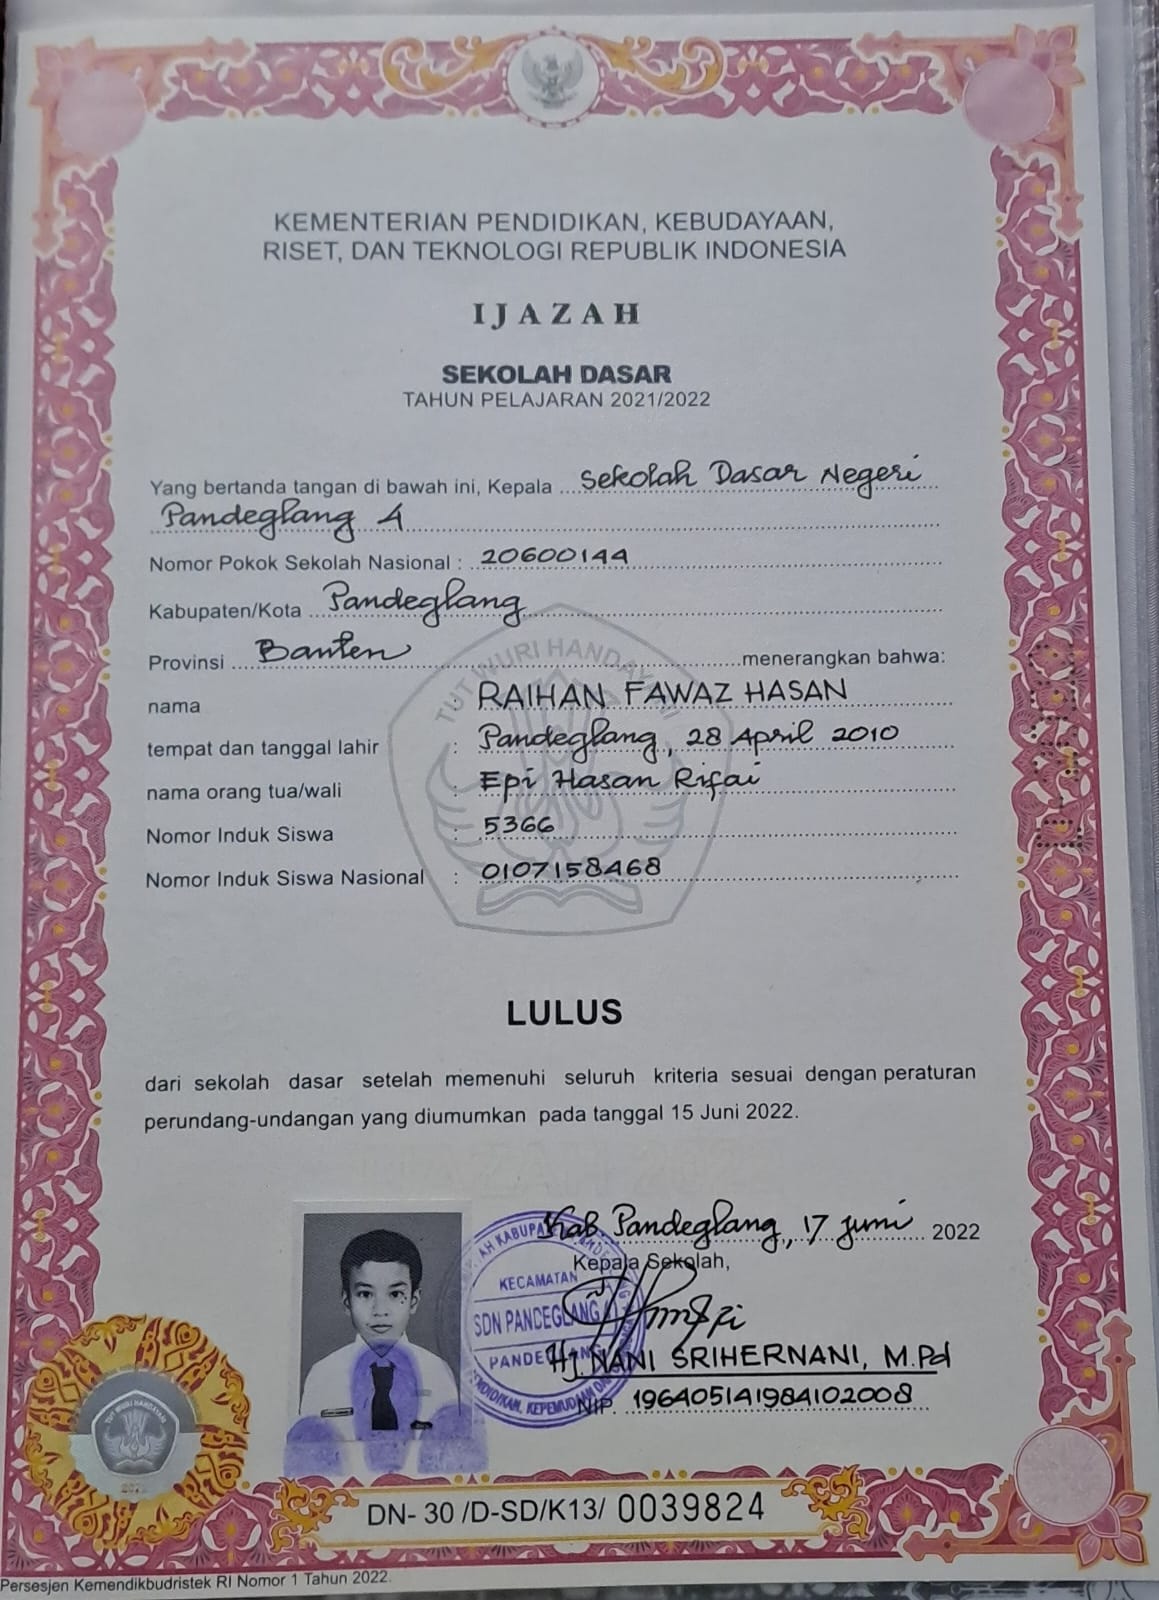 KEMENTERIAN PENDIDIKAN, KEBUDAYAAN,
RISET, DAN TEKNOLOGI REPUBLIK INDONESIA
IJAZAH
SEKOLAH DASAR
TAHUN PELAJARAN 2021/2022
Yang bertanda tangan di bawah ini, Kepala Sekolah Dasar Negeri
Pandeglang 4
Nomor Pokok Sekolah Nasional : 20600144
Kabupaten/Kota Pandeglang
Provinsi Banten menerangkan bahwa:
TUT WURI HANDAYANI
nama RAIHAN FAWAZ HASAN
tempat dan tanggal lahir : Pandeglang, 28 April 2010
nama orang tua/wali : Epi Hasan Rifai
Nomor Induk Siswa : 5366
Nomor Induk Siswa Nasional : 0107158468
LULUS
dari sekolah dasar setelah memenuhi seluruh kriteria sesuai dengan peraturan
perundang-undangan yang diumumkan pada tanggal 15 Juni 2022.
Kab. Pandeglang, 17 Juni 2022
Kepala Sekolah,
KECAMATAN
SDN PANDEGLANG 4
Hj. NANI SRIHERNANI, M.Pd
NIP. 196405141984102008
TUT WURI HANDAYANI
2022
DN- 30 /D-SD/K13/ 0039824
Persesjen Kemendikbudristek RI Nomor 1 Tahun 2022.